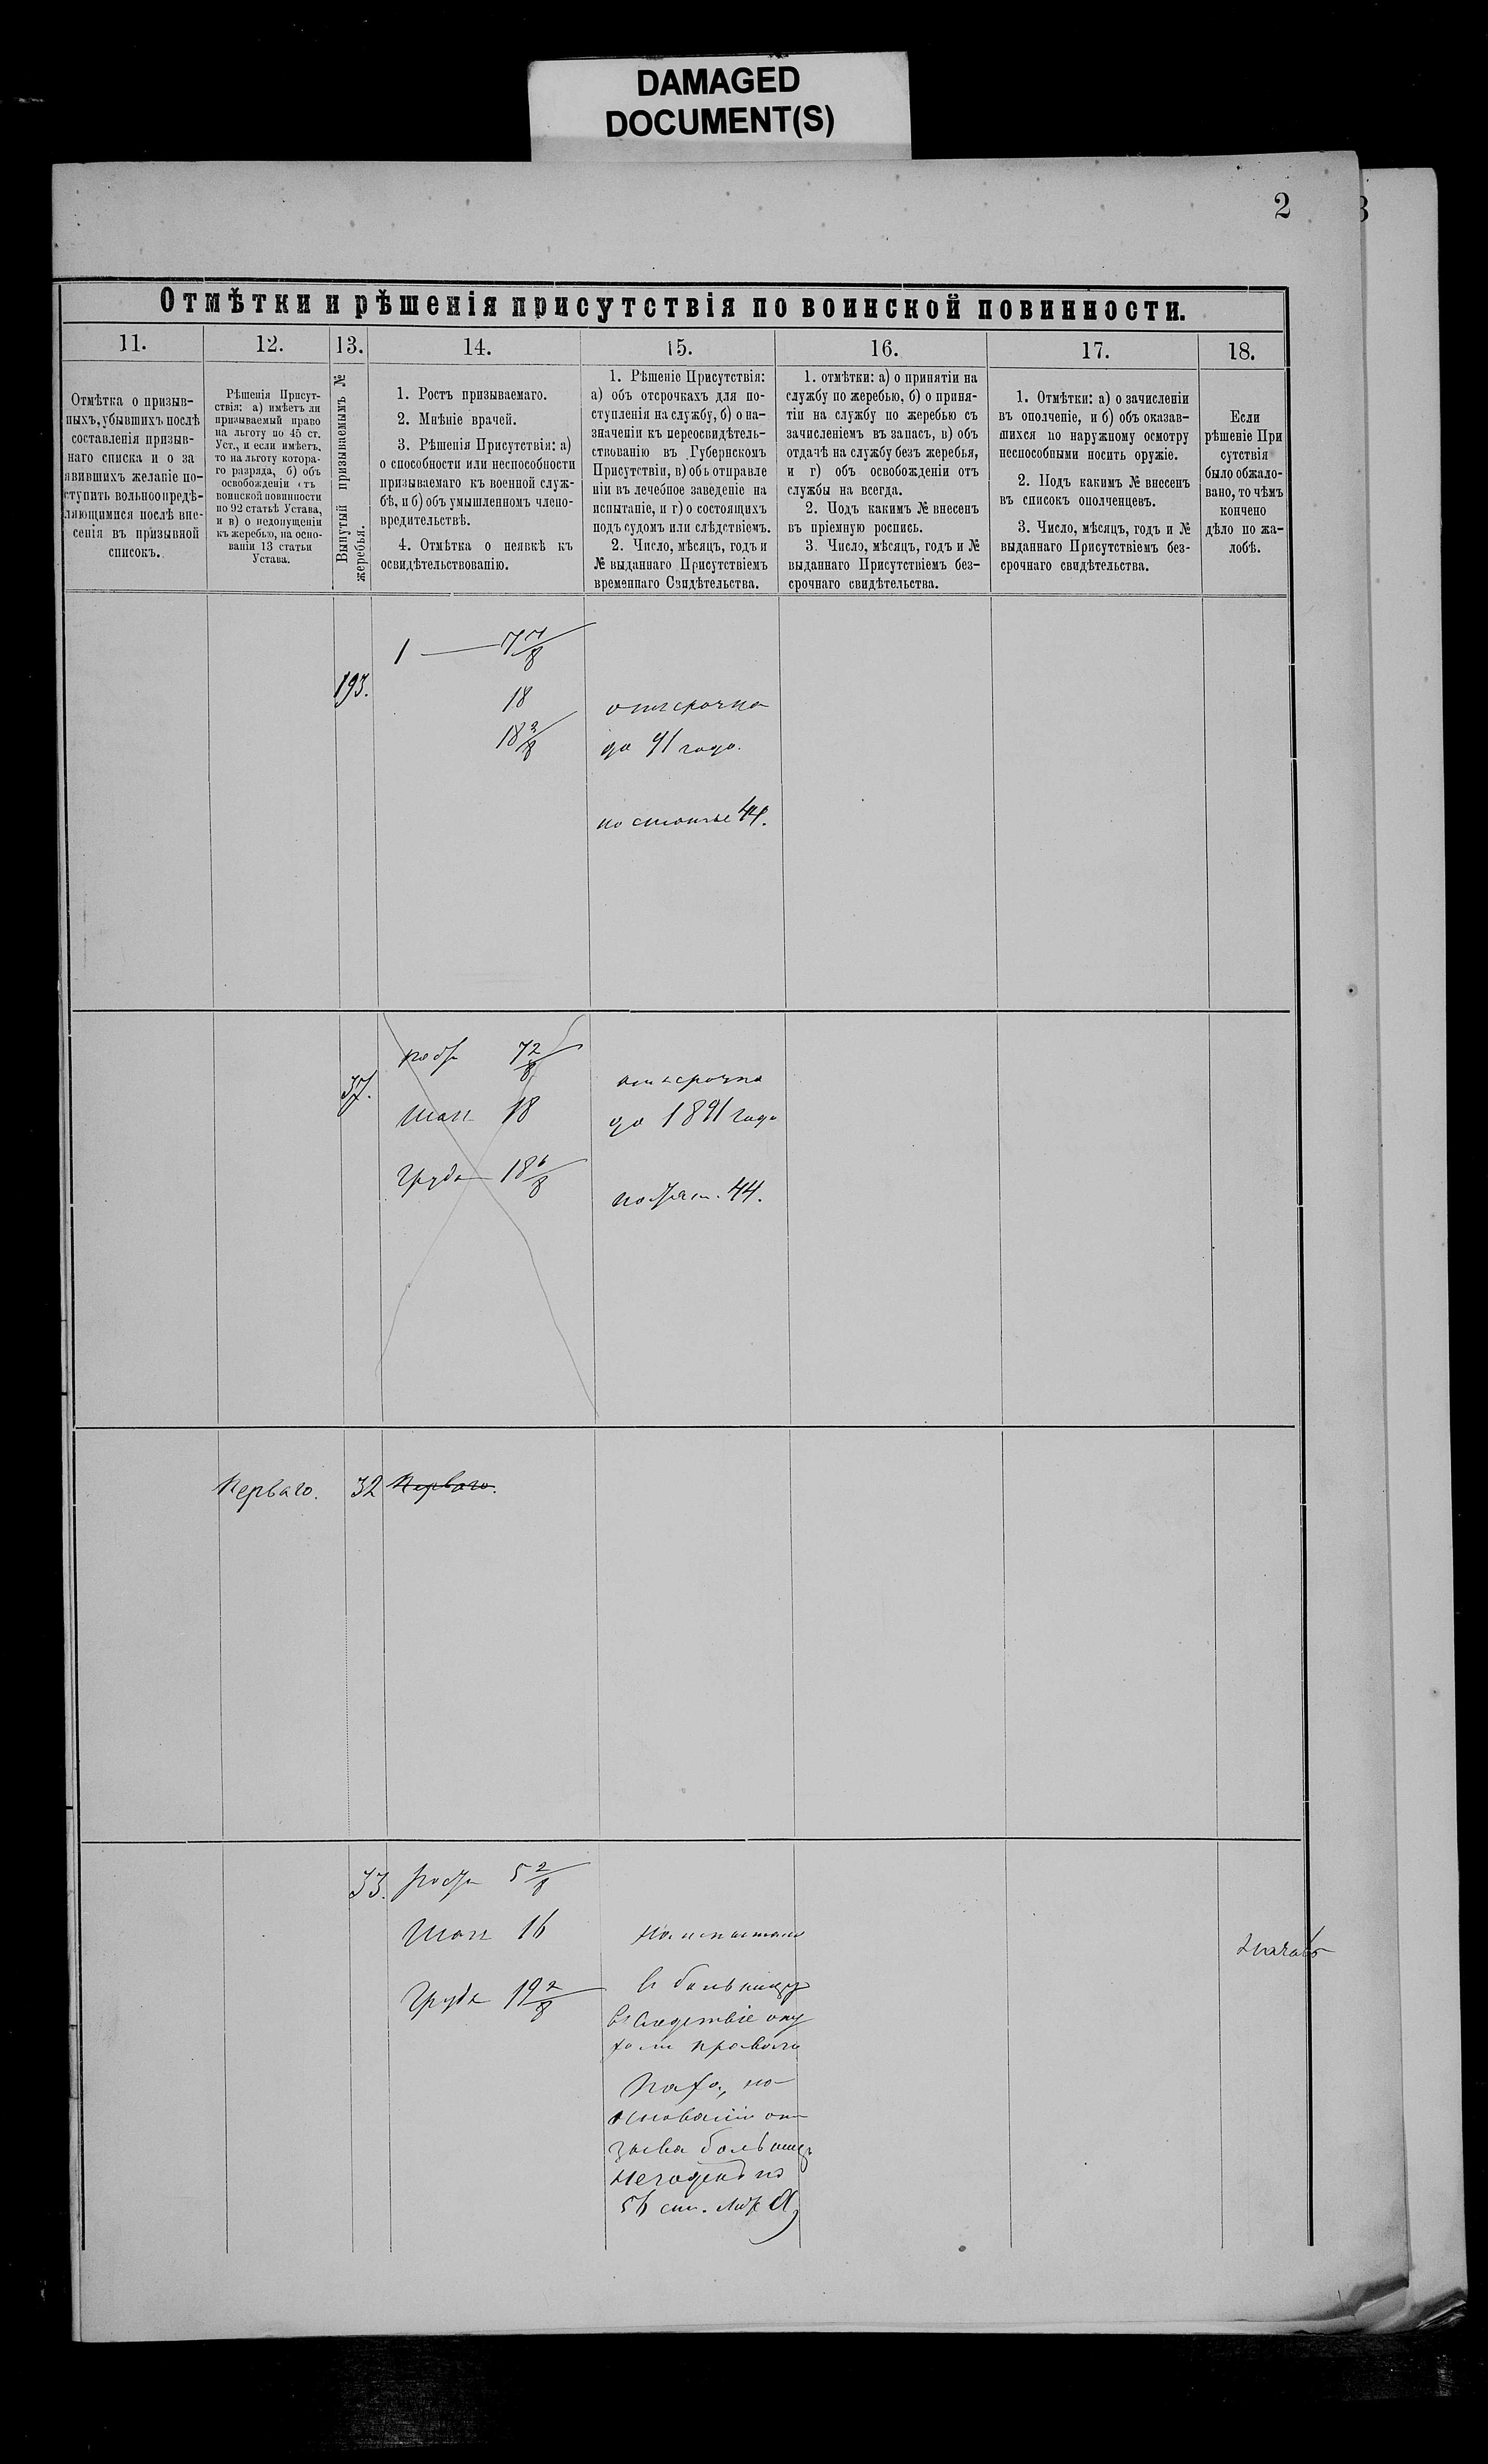 DAMAGED
DOCUMENT(S)
2
3
Отмѣтки и рѣшенія присутствія по воинской повинности.
11.
12.
13.
14.
15.
16.
17.
18.
Отмѣтка о призыв-
ныхъ, убывшихъ послѣ
составленія призыв-
наго списка и о за
явившихъ желаніе по-
ступить вольноопредѣ-
ляющимися послѣ вне-
сенія въ призывной
списокъ.
Рѣшенія Присут-
ствія: а) имѣетъ ли
призываемый право
на льготу по 45 ст.
Уст., и если имѣетъ,
то на льготу котора-
го разряда, б) объ
освобожденіи отъ
воинской повинности
по 92 статьѣ Устава,
и в) о недопущеніи
къ жеребью, на осно-
ваніи 13 статьи
Устава.
Вынутый призываемымъ №
жеребья.
1. Ростъ призываемаго.
2. Мнѣніе врачей.
3. Рѣшенія Присутствія: а)
о способности или неспособности
призываемаго къ военной служ-
бѣ, и б) объ умышленномъ члено-
вредительствѣ.
4. Отмѣтка о неявкѣ къ
освидѣтельствованію.
1. Рѣшеніе Присутствія:
а) объ отсрочкахъ для по-
ступленія на службу, б) о на-
значеніи къ переосвидѣтель-
ствованію въ Губернскомъ
Присутствіи, в) объ отправле
ніи въ лечебное заведеніе на
испытаніе, и г) о состоящихъ
подъ судомъ или слѣдствіемъ.
2. Число, мѣсяцъ, годъ и
№ выданнаго Присутствіемъ
временнаго Свидѣтельства.
1. отмѣтки: а) о принятіи на
службу по жеребью, б) о приня-
тіи на службу по жеребью съ
зачисленіемъ въ запасъ, в) объ
отдачѣ на службу безъ жеребья,
и г) объ освобожденіи отъ
службы на всегда.
2. Подъ какимъ № внесенъ
въ пріемную роспись.
3. Число, мѣсяцъ, годъ и №
выданнаго Присутствіемъ без-
срочнаго свидѣтельства.
1. Отмѣтки: а) о зачисленіи
въ ополченіе, и б) объ оказав-
шихся по наружному осмотру
неспособными носить оружіе.
2. Подъ какимъ № внесенъ
въ списокъ ополченцевъ.
3. Число, мѣсяцъ, годъ и №
выданнаго Присутствіемъ без-
срочнаго свидѣтельства.
Если
рѣшеніе При
сутствія
было обжало-
вано, то чѣмъ
кончено
дѣло по жа-
лобѣ.
193.
1 — 7 7/8
18
18 3/8
отсрочка
до 91 года.
по статье 44.
37.
рость 7 2/8
18
Грудь 18 6/8
отсрочка
до 1891 года
ст. 44.
Перваго.
32
Перваго.
33.
рость 5 2/8
16
Грудь 19 2/8
на испытаніе
в больницу
вследствіе опу
холи праваго
паха, на
основаніи от
зыва больниц
негоденъ по
56 ст. лит. А